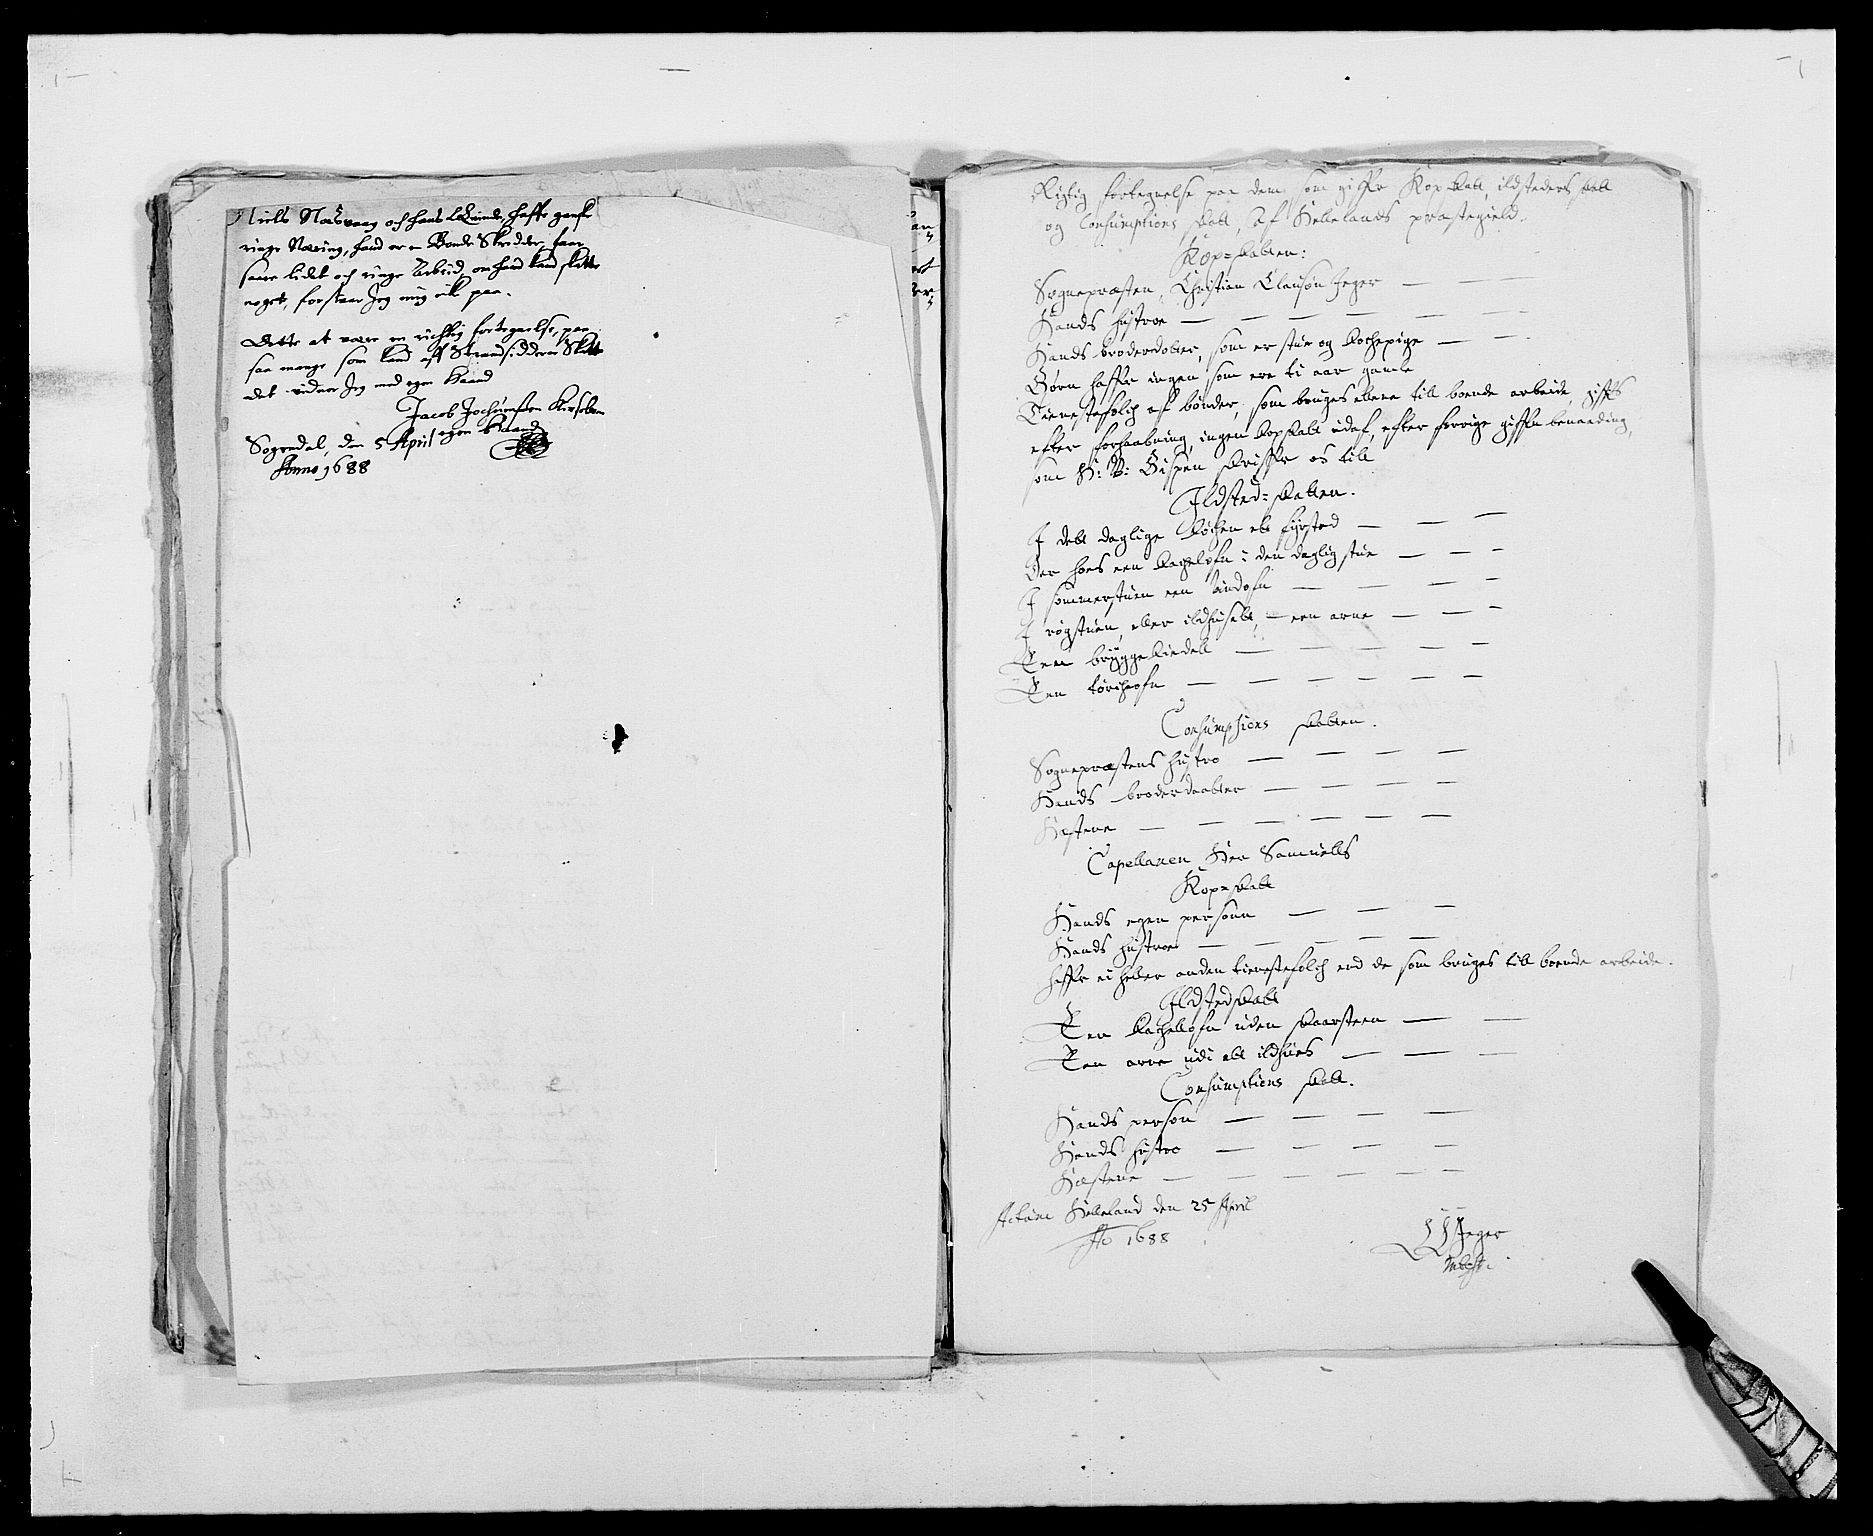 Niels Nasvaag och hans Qvinde, haffr ganske
ringe Næring, hand er en Bonde Skredder, faar
saare lidet och ringe Arbeid, om hand kand skatte
noget, forstaar Jeg mig ei paa.
Dette at være en richtig fortegnelse, paa
saa mange som kand aff Strandsidderne Skatte
det vidner Jeg med egen Haand
Jacob Jochumsen
egen Haand
Sogndal, den 5 April
Anno 1688
Rigtig fortegnelse paa dem som giffr Kopskatt, ildsteders skatt
og Consumptions skatt, af Hellelands præstegield.
Kop=skatten:
Sognepræsten, Christian Clausøn Jeger
Hands hustroe
Hands broderdotter, som er stue og kochepige
Børn haffr ingen som ere ti aar gamle
Tienestefolch af bønder, som bruges allene till boende arbeide, giffs
efter forhaabning, ingen kopskatt udaf, efter forrige giffn benaading,
som H: V: Bispen skriffr os till
Ildsted=skatten.
I dett daglige kochen ett fyrsted
Der hoes een kachelofn i den daglig stue
I sommerstuen een vindofn
I røgstuen, eller ildhusett, een arne
Een bryggekiedell
Een tørcheofn
Consumptions skatten.
Sognepræstens hustro
Hands broderdaatter
Hæstene
Capellanen Her Samuells
Kop=skatt
Hands egen persoun
Hands hustroe
haffr ei heller anden tienestefolch end de som bruges till boende arbeide.
Ildstedskatt
Een kachellofn uden skaarsteen
Een arne udi ett ildhues
Consumptions skatt.
Hands person
Hands hustro
Hæstene
Actum Helleland den 25 April
Ao 1688
CCJeger